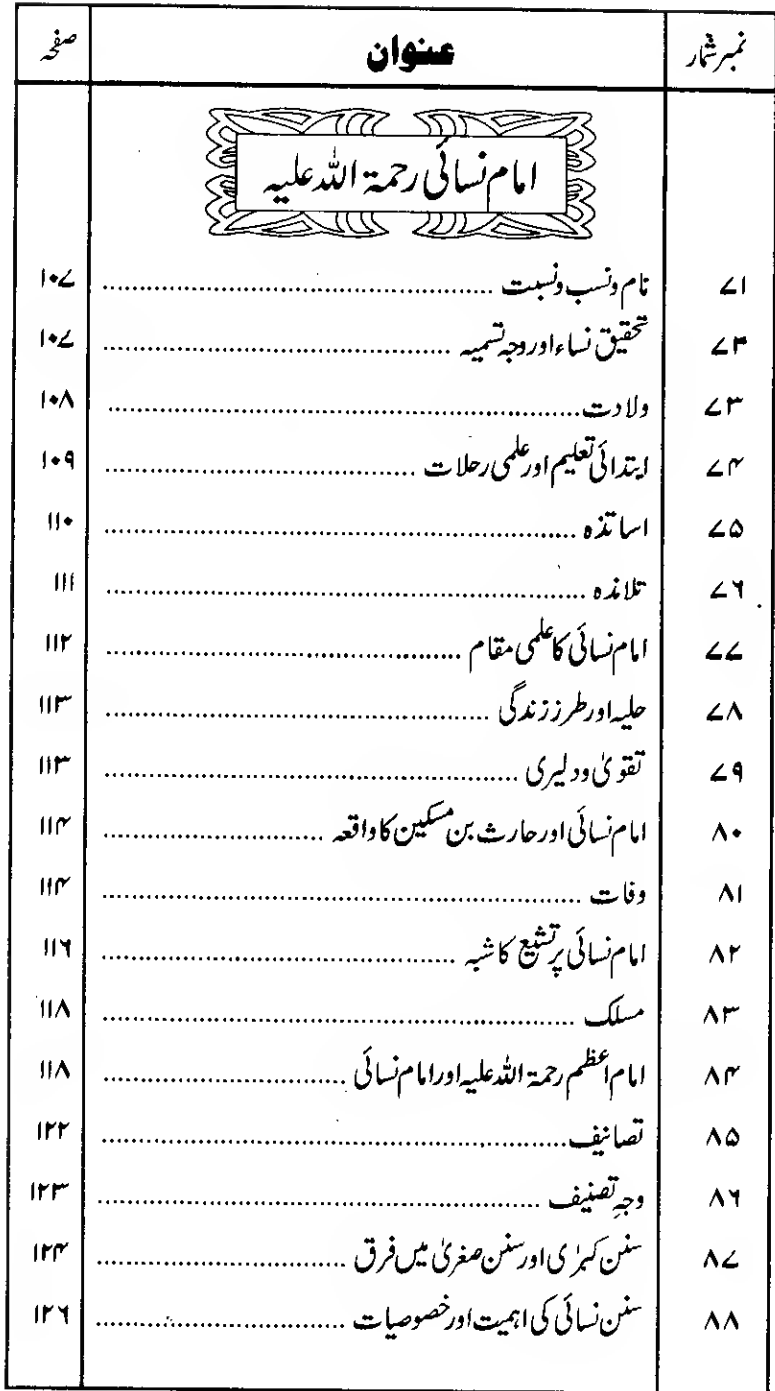 نمبر شمار عنوان صفحہ
امام نسائی رحمۃ اللہ علیہ
۷۱ نام ونسب ونسبت ۱۰۷
۷۳ تحقیق نساء اور وجہ تسمیہ ۱۰۷
۷۳ ولادت ۱۰۸
۷۴ ابتدائی تعلیم اور علمی رحلات ۱۰۹
۷۵ اساتذہ ۱۱۰
۷۶ تلاندہ ۱۱۱
۷۷ امام نسائی کا علمی مقام ۱۱۲
۷۸ حلیہ اور طرز زندگی ۱۱۳
۷۹ تقویٰ ودلیری ۱۱۳
۸۰ امام نسائی اور حارث بن مسکین کا واقعہ ۱۱۴
۸۱ وفات ۱۱۴
۸۲ امام نسائی پر تشیع کا شبہ ۱۱۶
۸۳ مسلک ۱۱۸
۸۴ امام اعظم رحمۃ اللہ علیہ اور امام نسائی ۱۱۸
۸۵ تصانیف ۱۲۲
۸۶ وجہِ تصنیف ۱۲۳
۸۷ سنن کبرٰی اور سنن صغریٰ میں فرق ۱۲۴
۸۸ سنن نسائی کی اہمیت اور خصوصیات ۱۲۶